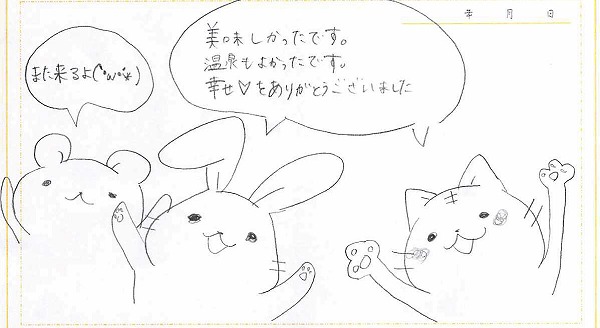 年 月 日
美味しかったです。
温泉もよかったです。
幸せ♡をありがとうございました
また来るよ(*•ω•*)